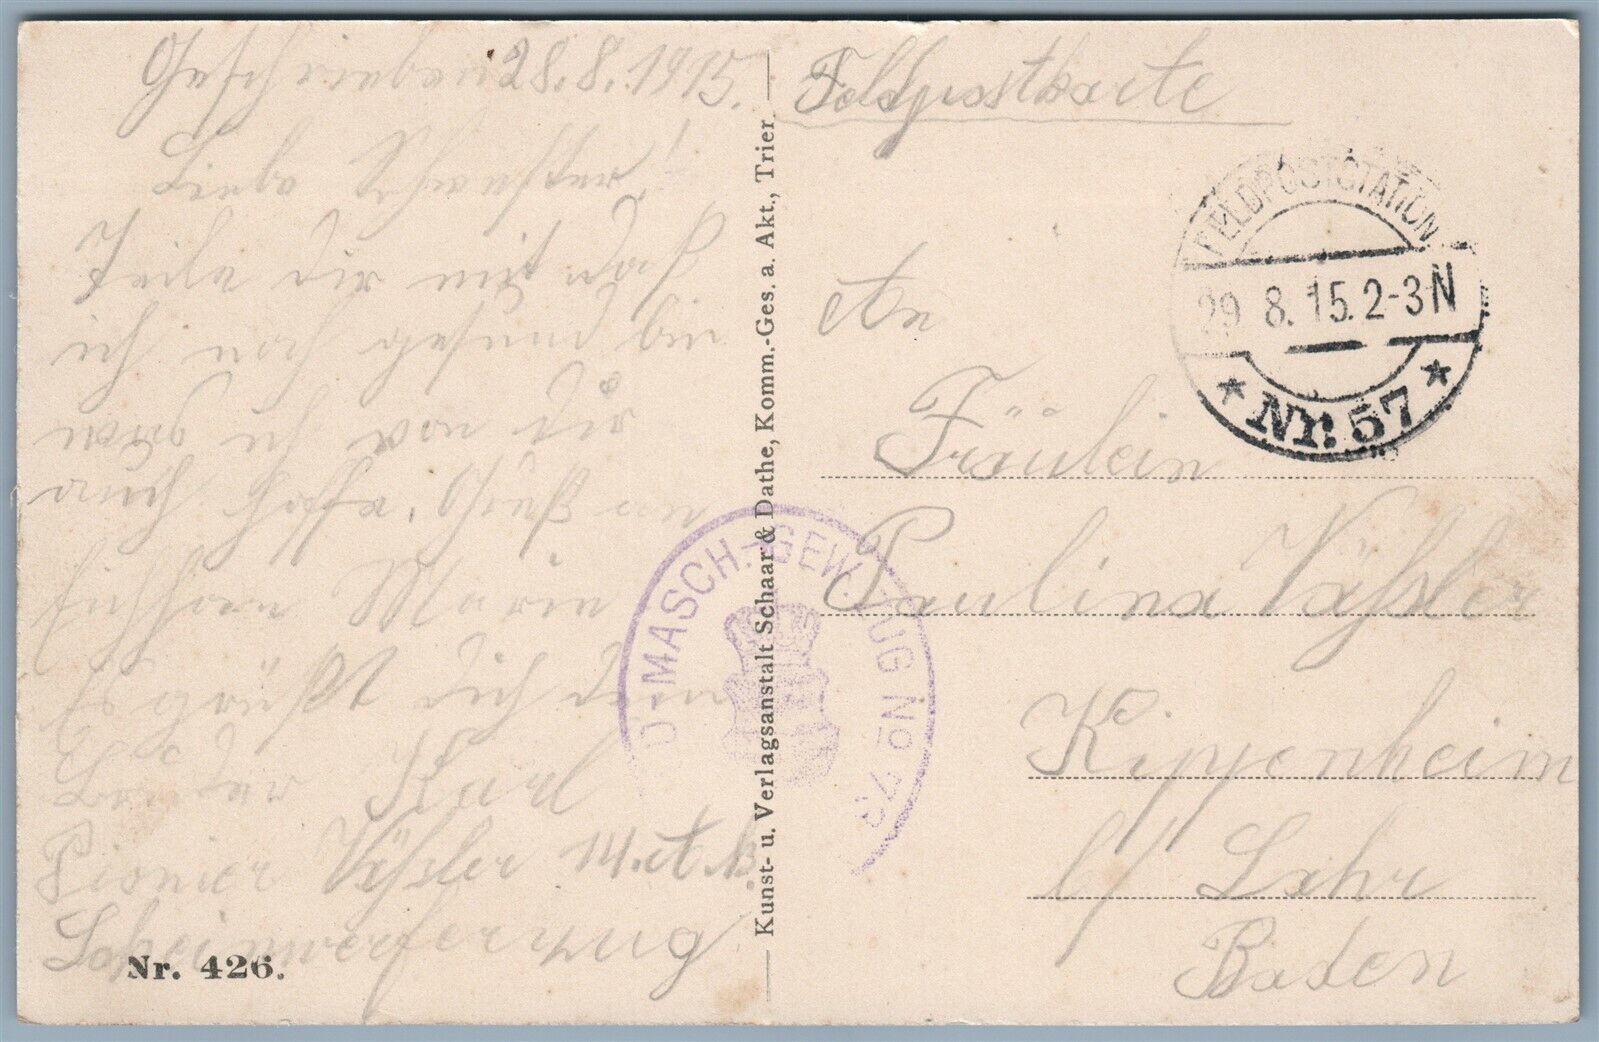 Geschrieben 28.8.1915.
Liebe Schwester!
Teile dir mit das
ich noch gesund bin
was ich von dir
auch hoffe. Gruß an
Marie
Es grüßt dich dein
Bruder Karl
Pionier Käßler 14. A. K.
Scheinwerferzug
Nr. 426.
Kunst- u. Verlagsanstalt Schaar & Dathe, Komm.-Ges. a. Akt., Trier
Feldpostkarte
FELDPOSTSTATION
29 8. 15. 2-3 N
* Nr. 57 *
MASCH.-GEW. ZUG No
An
Fräulein
Paulina Käßler
Kippenheim
b/ Lahr
Baden